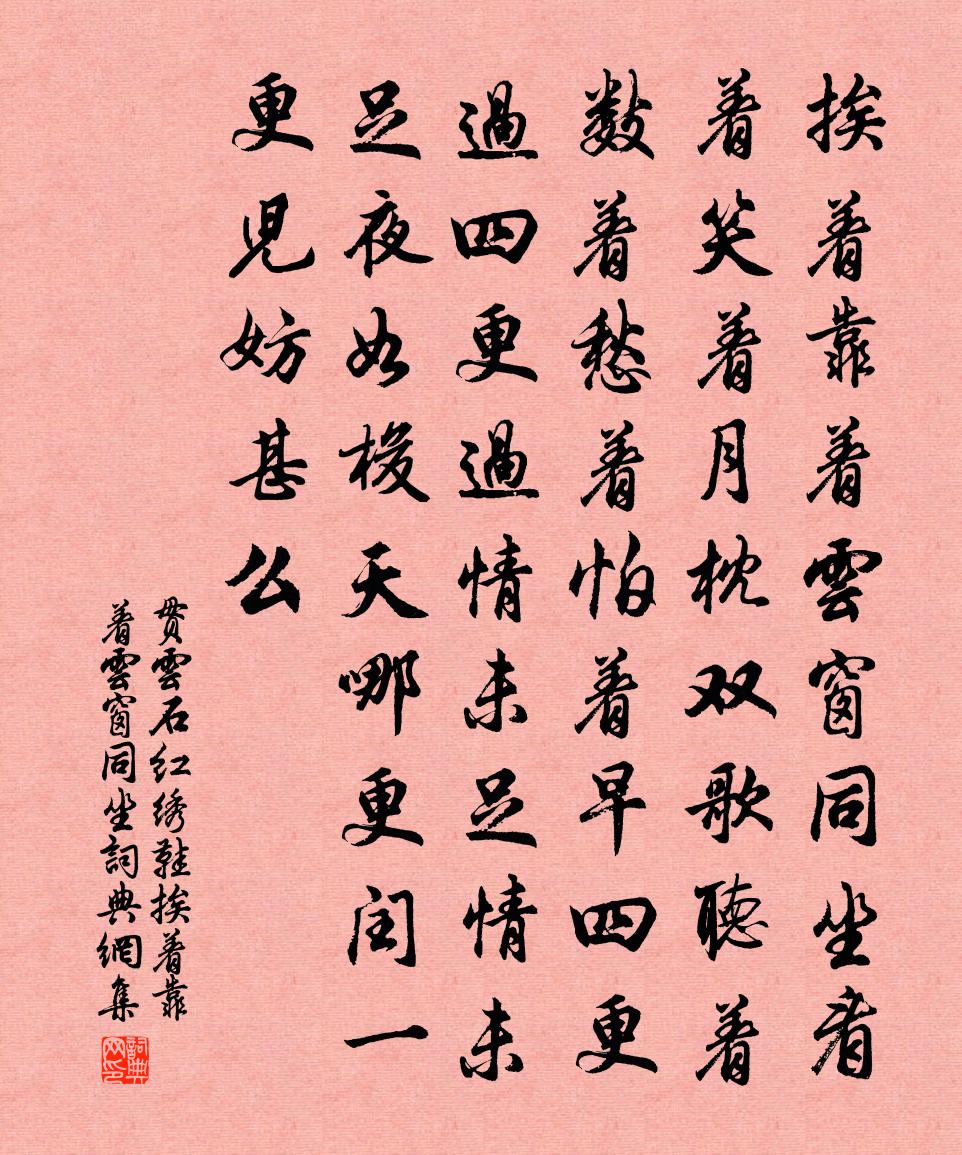 挨着靠着雲窗同坐看
着笑着月枕双歌聽着
数着愁着怕着早四更
過四更過情未足情未
足夜如梭天哪更闰一
更児妨甚么
贯雲石红绣鞋挨着靠
着雲窗同坐詞典網集
詞典
网印